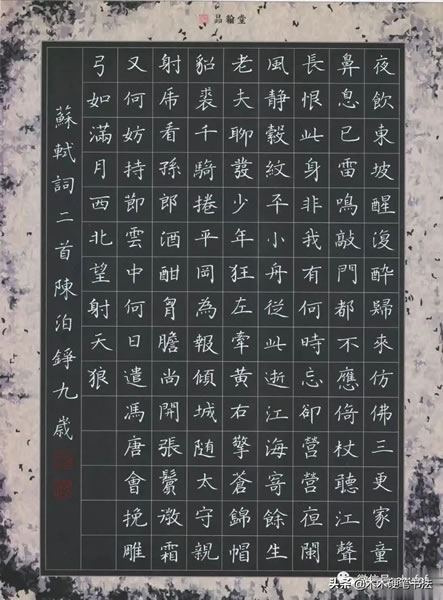 品翰堂
夜飲東坡醒復醉歸來仿佛三更家童
鼻息已雷鳴敲門都不應倚杖聽江聲
長恨此身非我有何時忘卻營營夜闌
風靜縠紋平小舟從此逝江海寄餘生
老夫聊發少年狂左牽黃右擎蒼錦帽
貂裘千騎捲平岡為報傾城随太守親
射虎看孫郎酒酣胷膽尚開張鬢微霜
又何妨持節雲中何日遣馮唐會挽雕
弓如滿月西北望射天狼
蘇軾詞二首陳泊錚九歲
头条 @木木硬笔书法